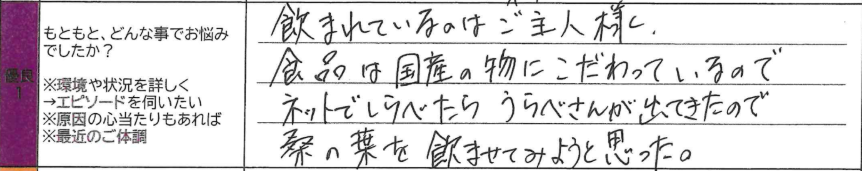 優良
1
もともと、どんな事でお悩み
でしたか？
※環境や状況を詳しく
→エピソードを伺いたい
※原因の心当たりもあれば
※最近のご体調
飲まれているのはご主人様で、
食品は国産の物にこだわっているので
ネットでしらべたら うらべさんが出てきたので
桑の葉を飲ませてみようと思った。